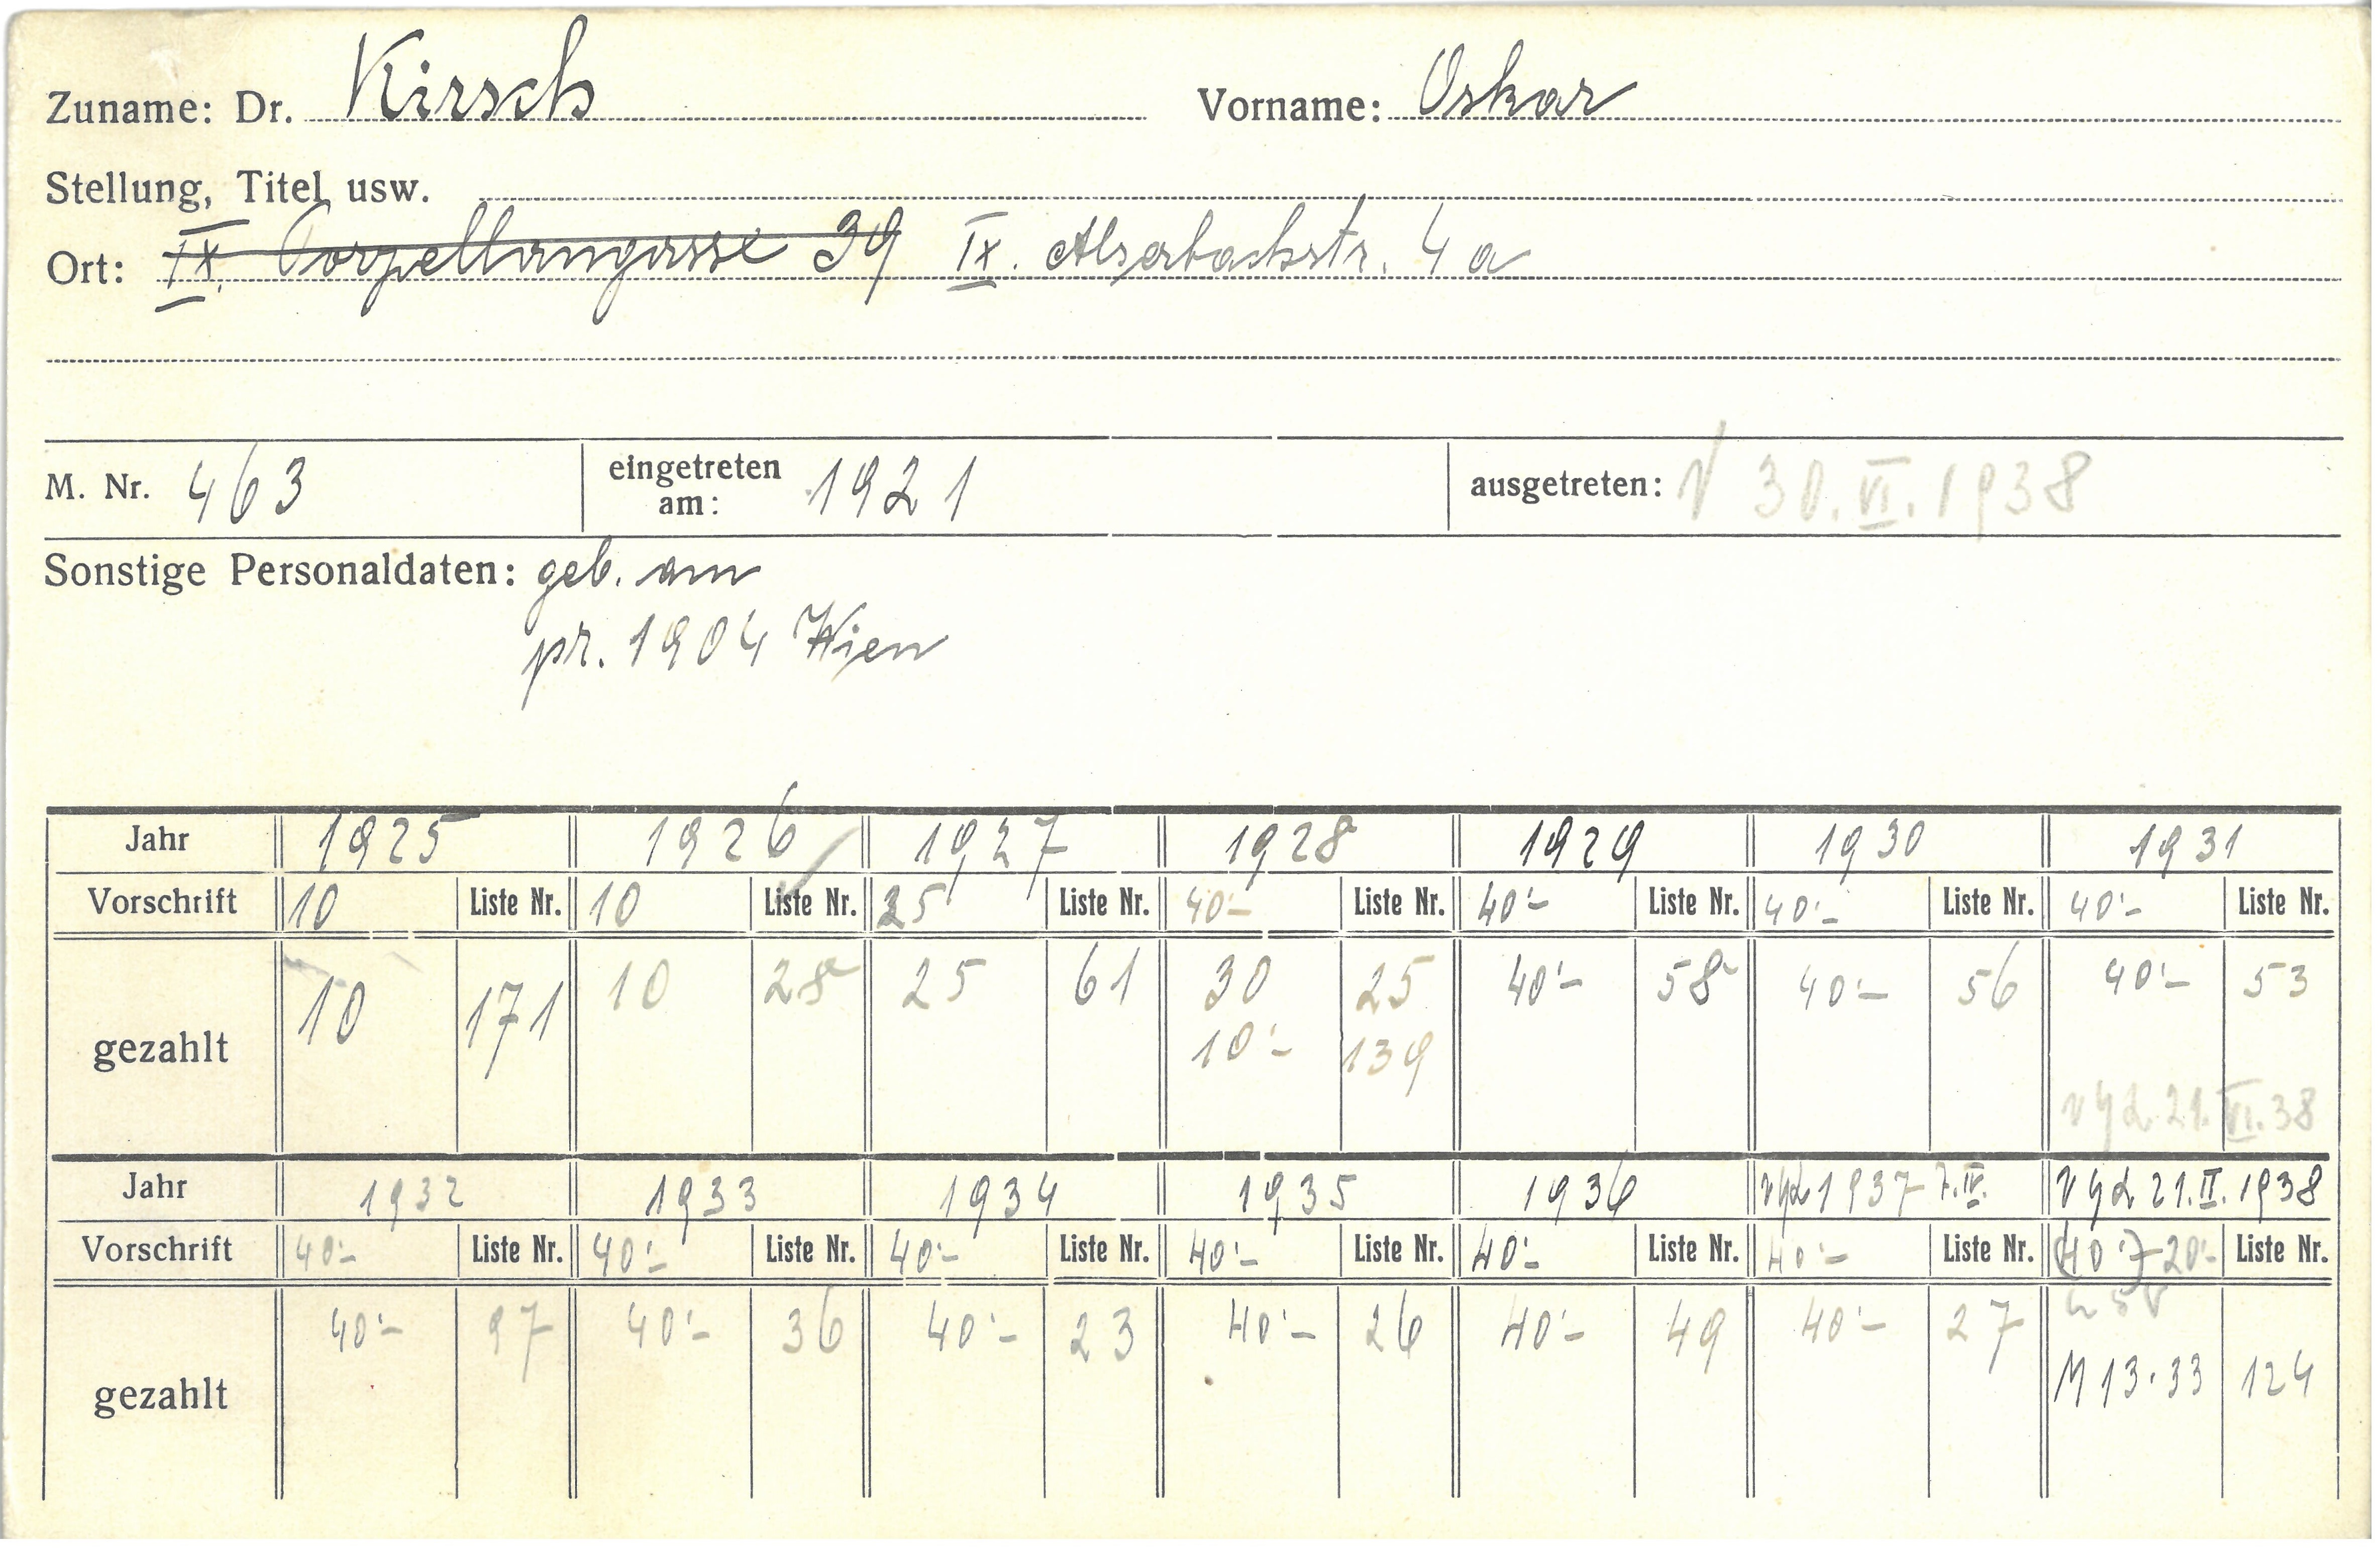 Zuname: Dr. Kirsch Vorname: Oskar
Stellung, Titel usw.
Ort: IX. Porzellangasse 39 IX. Alserbachstr. 4a
M. Nr. 463 eingetreten am: 1921 ausgetreten: 30.VI.1938
Sonstige Personaldaten: geb. am
pr. 1904 Wien
Jahr 1925 1926 1927 1928 1929 1930 1931
Vorschrift 10 Liste Nr. 10 Liste Nr. 25 Liste Nr. 40'- Liste Nr. 40'- Liste Nr. 40'- Liste Nr. 40'- Liste Nr.
gezahlt 10 171 10 28 25 61 30 25 40'- 58 40'- 56 40'- 53
10'- 139
21.VI.38
Jahr 1932 1933 1934 1935 1936 1937 7.IV. 21.II.1938
Vorschrift 40'- Liste Nr. 40'- Liste Nr. 40'- Liste Nr. 40'- Liste Nr. 40'- Liste Nr. 40'- Liste Nr. (40'-) 20'- Liste Nr.
gezahlt 40'- 97 40'- 36 40'- 23 40'- 26 40'- 49 40'- 27
M 13.33 124